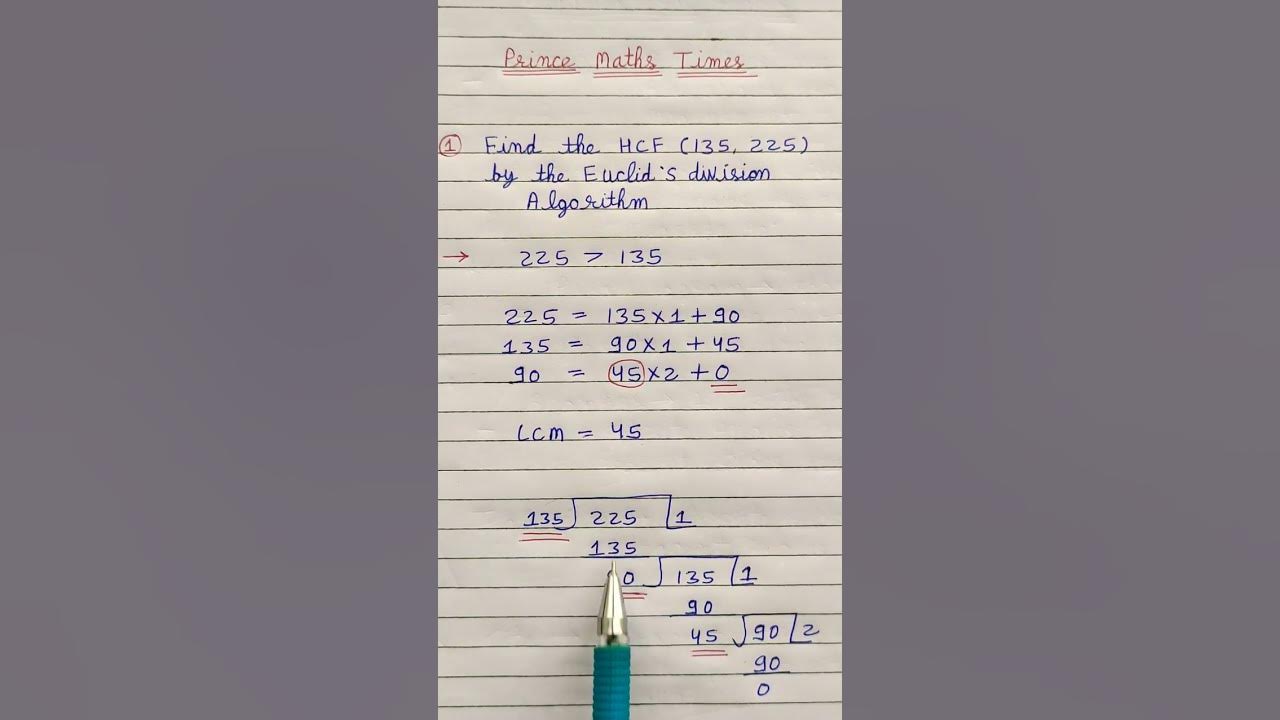 Prince Maths Times
1 Find the HCF (135, 225)
by the Euclid's division
Algorithm
→ 225 > 135
225 = 135×1+90
135 = 90×1+45
90 = 45×2+0
LCM = 45
135 225 1
135
0 135 1
90
45 90 2
90
0